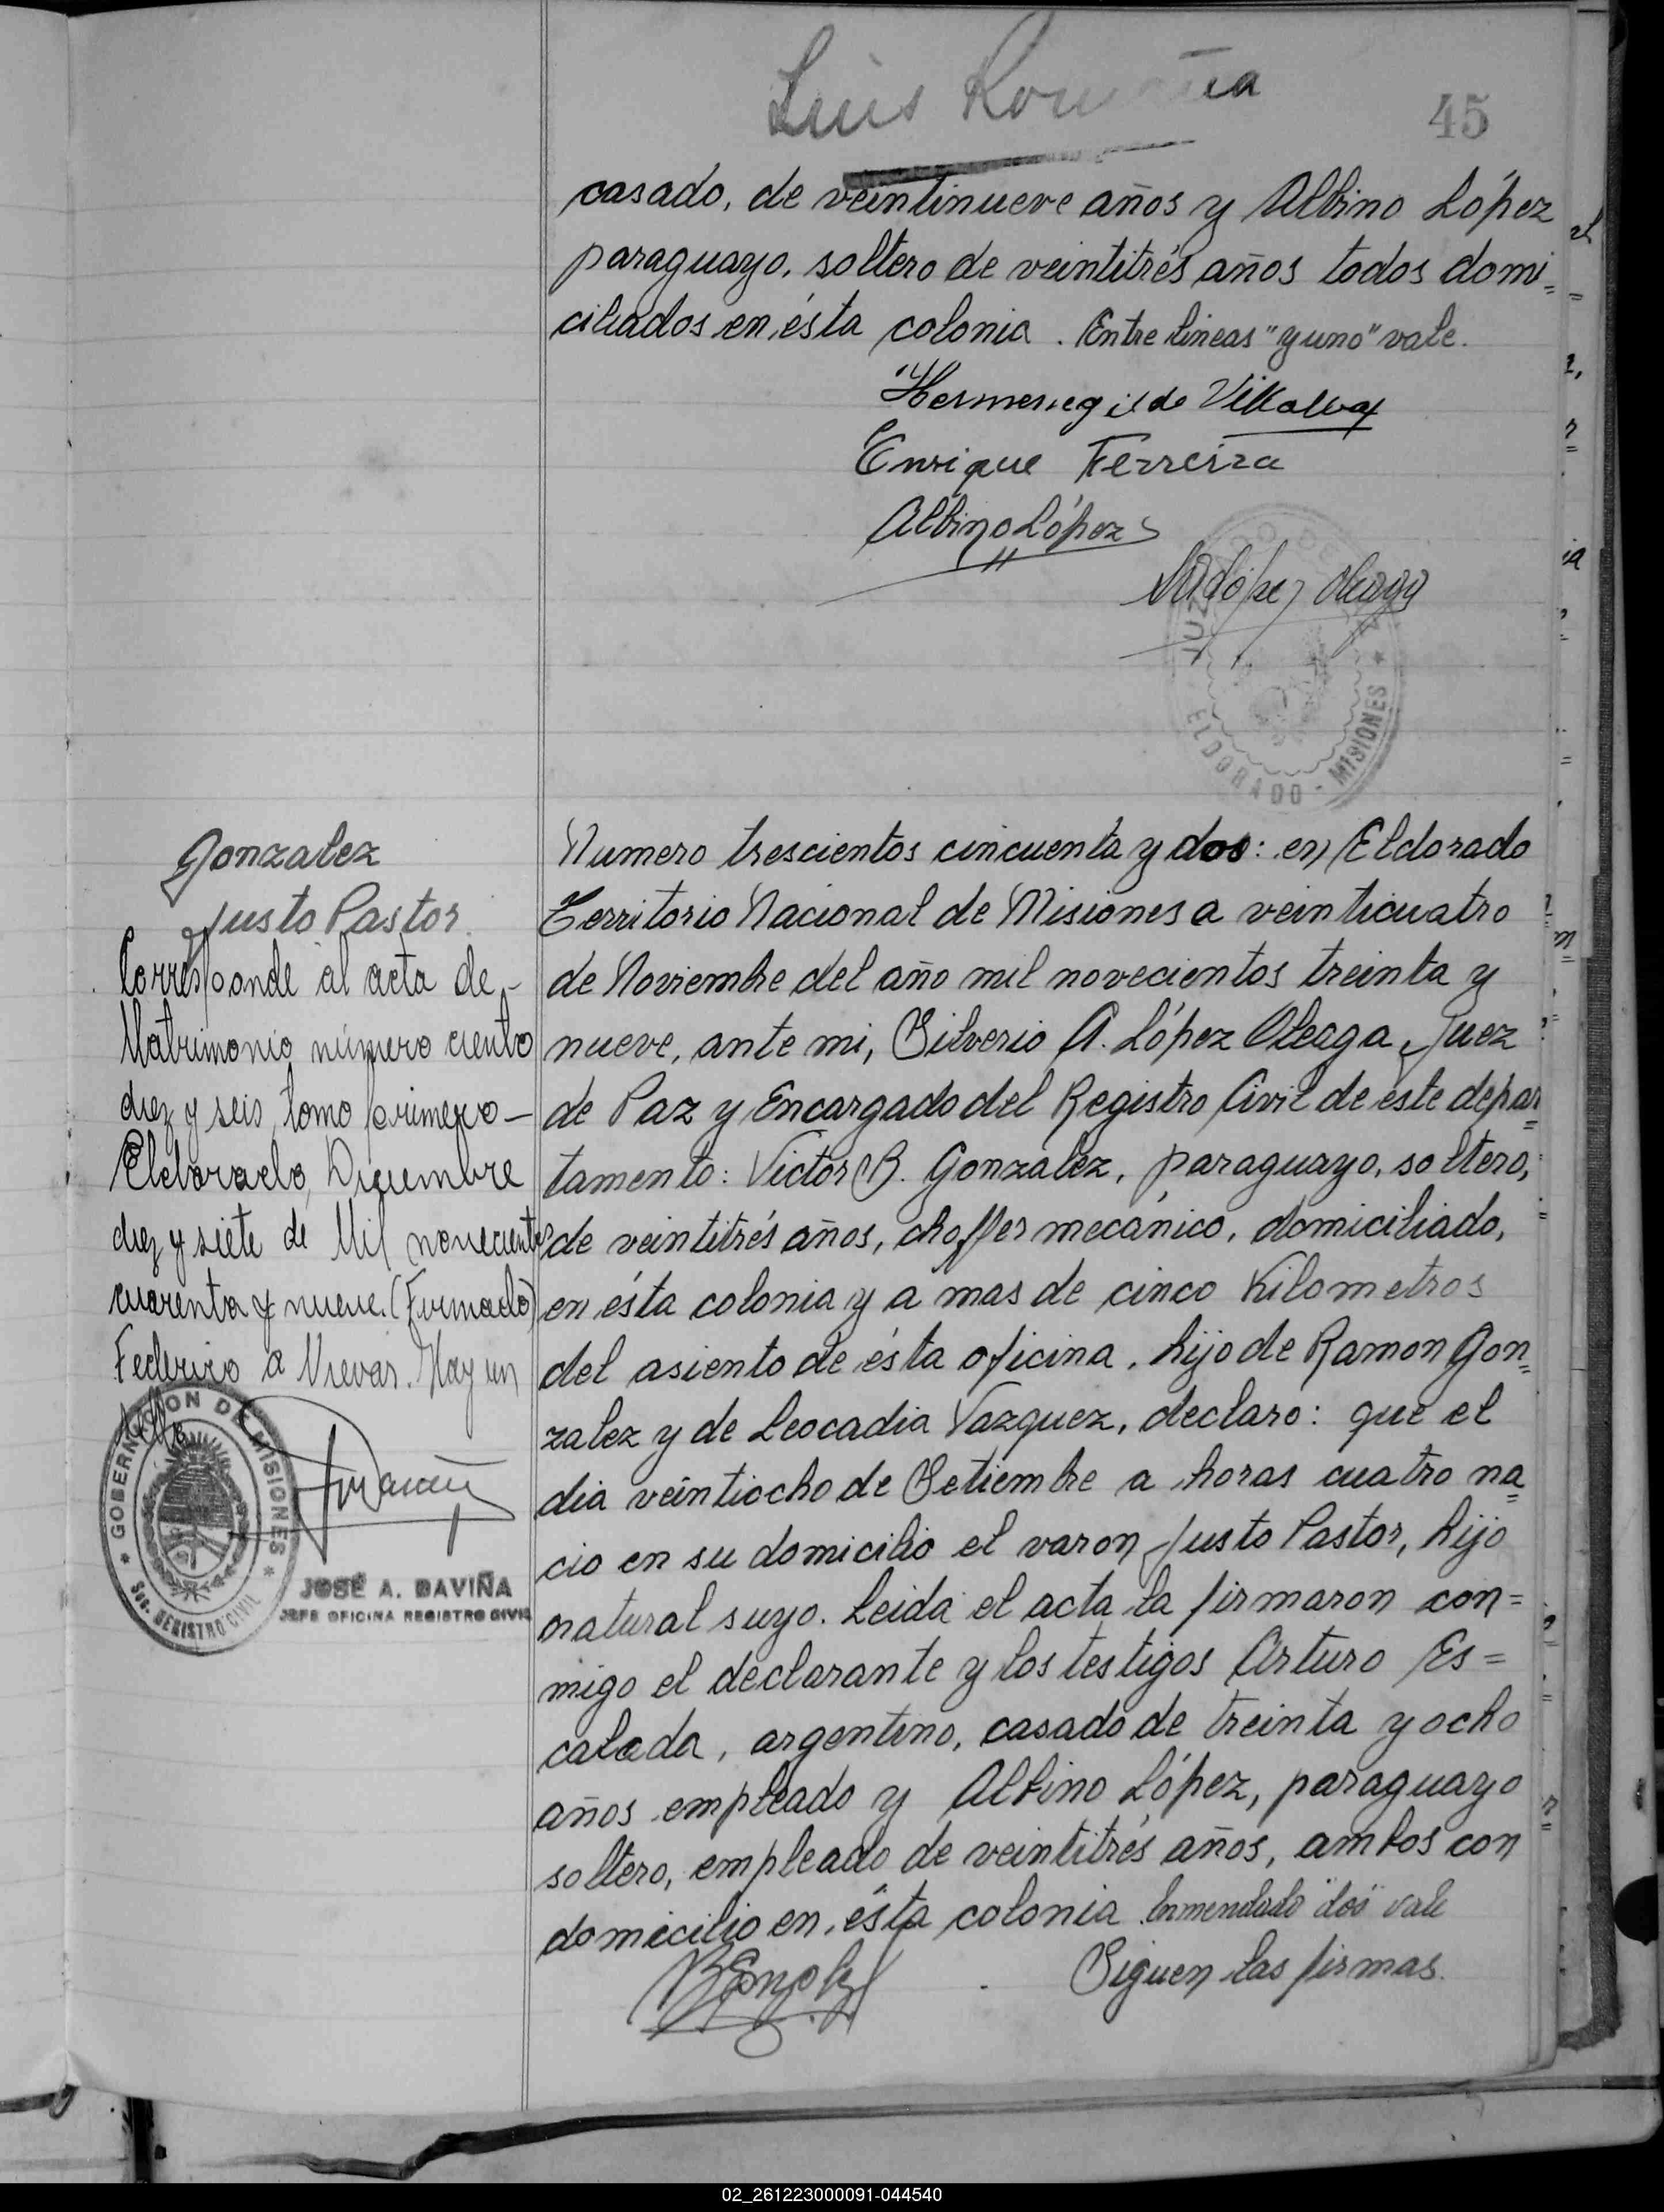 Luis
45
casado, de veintinueve años y Albino López
paraguayo, soltero de veintitrés años todos domi=
ciliados en ésta colonia. Entre lineas "y uno" vale.
Hermenegildo Villalva
Enrique Ferreira
Albino López
SALópez Oleaga
JUZGADO DE PAZ
ELDORADO - MISIONES *
Gonzalez
Justo Pastor.
Corresponde al acta de -
Matrimonio número ciento
diez y seis, tomo primero -
Eldorado, Diciembre
diez y siete de Mil noveciento
cuarenta y nueve. (Firmado)
Federico a Vrevar. Hay un
sello
* GOBERNACION DE MISIONES *
Sec. REGISTRO CIVIL
JOSÉ A. DAVIÑA
JEFE OFICINA REGISTRO CIVIL
Numero trescientos cincuenta y dos: en Eldorado
Territorio Nacional de Misiones a veinticuatro
de Noviembre del año mil novecientos treinta y
nueve, ante mi, Silverio A. López Oleaga, Juez
de Paz y Encargado del Registro Civil de este depar=
tamento: Victor B. Gonzalez, paraguayo, soltero,
de veintitrés años, choffer mecánico, domiciliado,
en ésta colonia y a mas de cinco Kilometros
del asiento de ésta oficina, hijo de Ramon Gon=
zalez y de Leocadia Vazquez, declaro: que el
dia veintiocho de Setiembre a horas cuatro na=
cio en su domicilio el varon Justo Pastor, hijo
natural suyo. Leida el acta la firmaron con=
migo el declarante y los testigos Arturo Es=
calada, argentino, casado de treinta y ocho
años empleado y Albino López, paraguayo
soltero, empleado de veintitrés años, ambos con
domicilio en ésta colonia. Enmendado "dos" vale
Siguen las firmas.
02_261223000091-044540